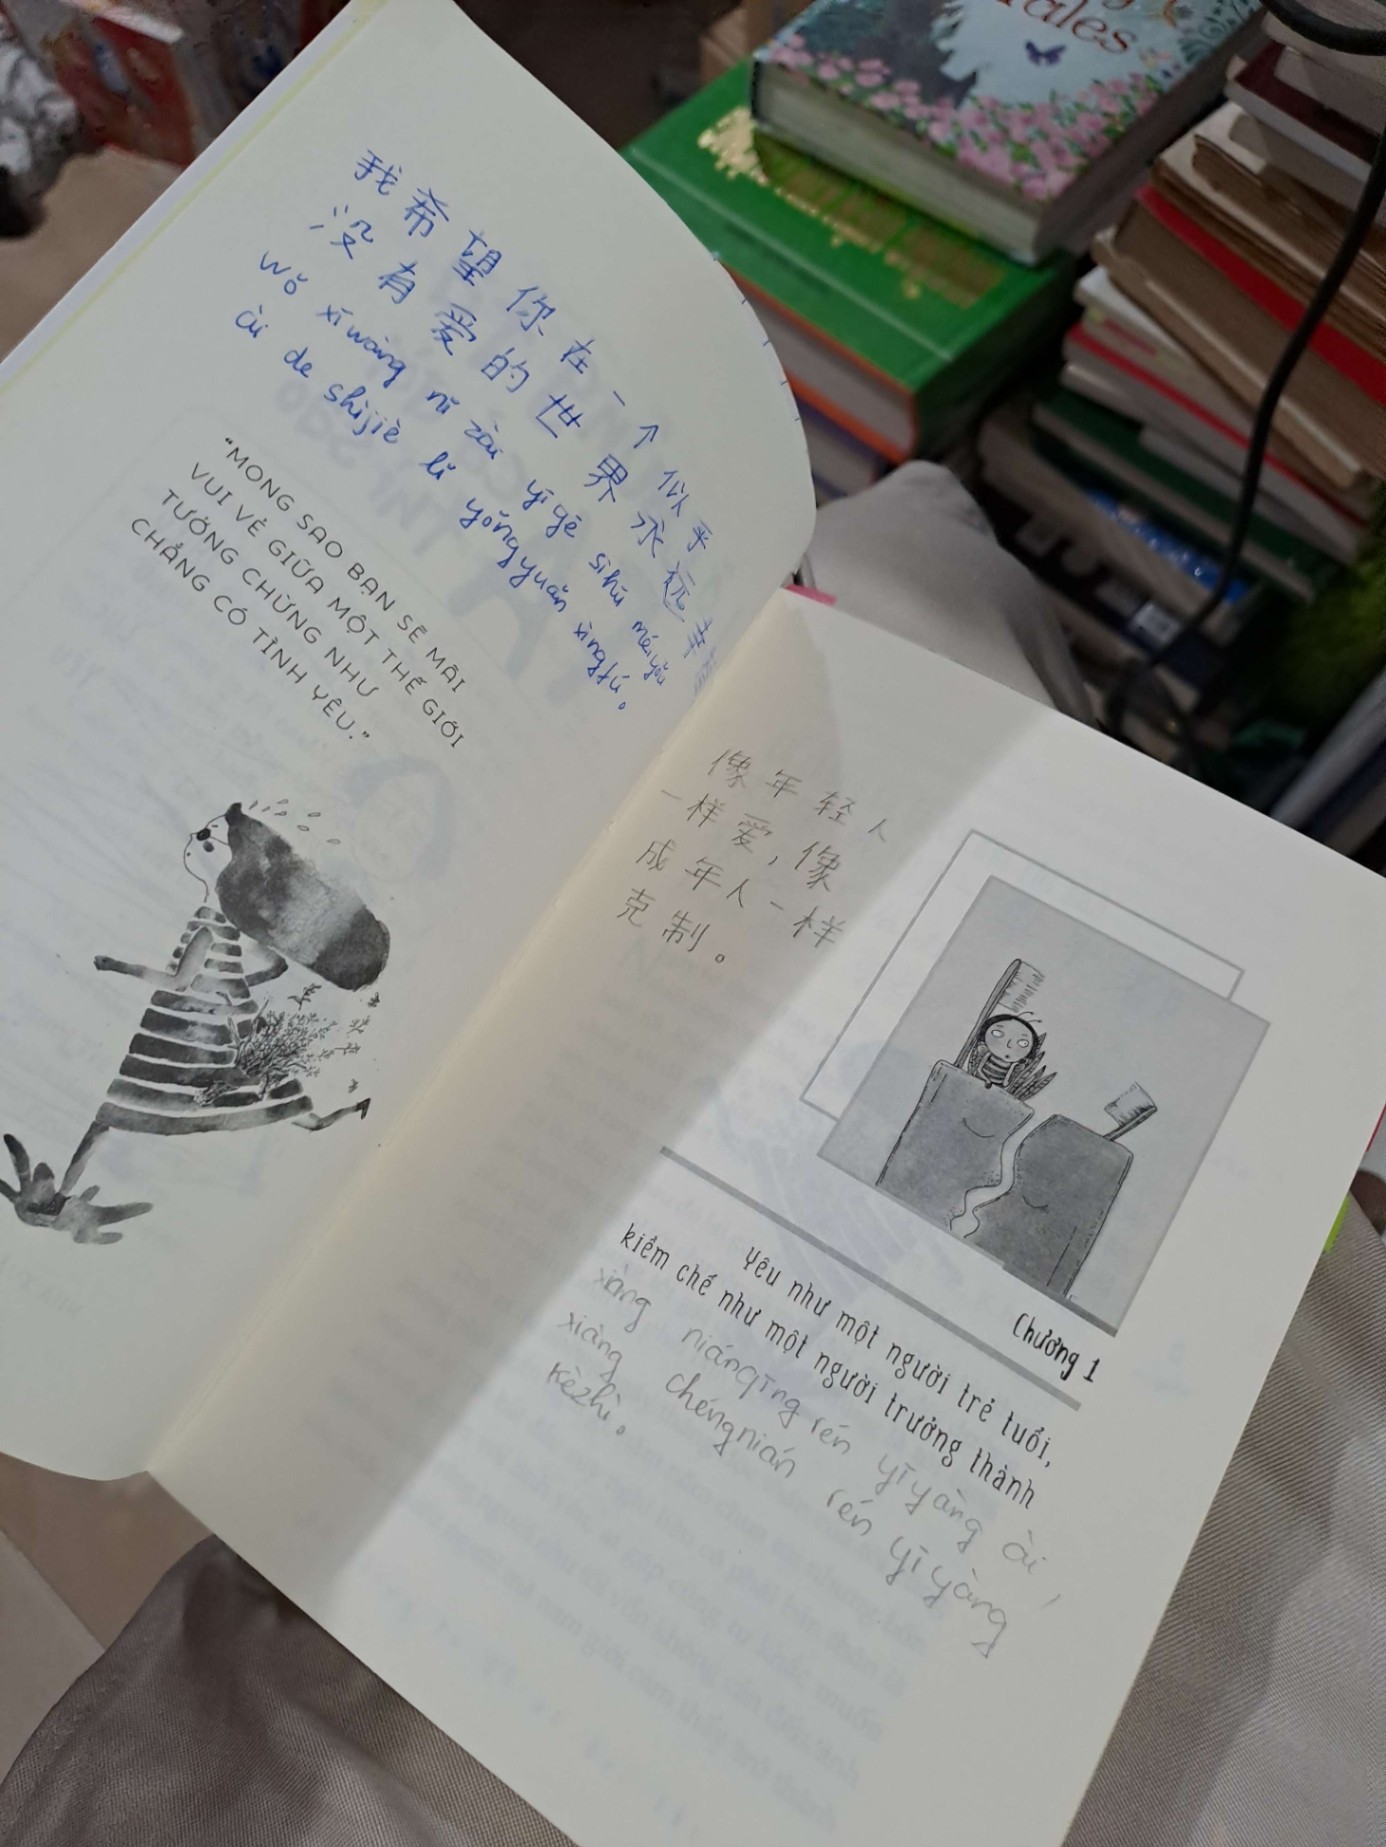 Tales
我希望你在一个似乎
没有爱的世界永远幸
wǒ xīwàng nǐ zài yīgè sìhū méiyǒu
ài de shìjiè lǐ yǒngyuǎn xìngfú。
“MONG SAO BẠN SẼ MÃI
VUI VẺ GIỮA MỘT THẾ GIỚI
TƯỞNG CHỪNG NHƯ
CHẲNG CÓ TÌNH YÊU.”
像年轻人
一样爱，像
成年人一样
克制。
Chương 1
Yêu như một người trẻ tuổi,
kiềm chế như một người trưởng thành
xiàng niánqīng rén yīyàng ài,
xiàng chéngnián rén yīyàng
kèzhì。